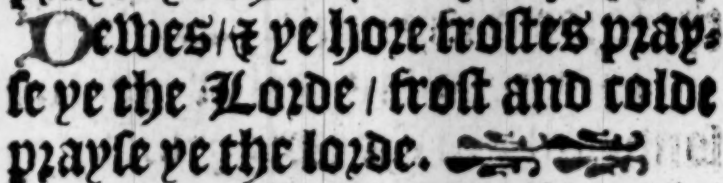 Dewes / & ye hore frostes pray⸗
se ye the Lorde / frost and colde
prayse ye the lorde.